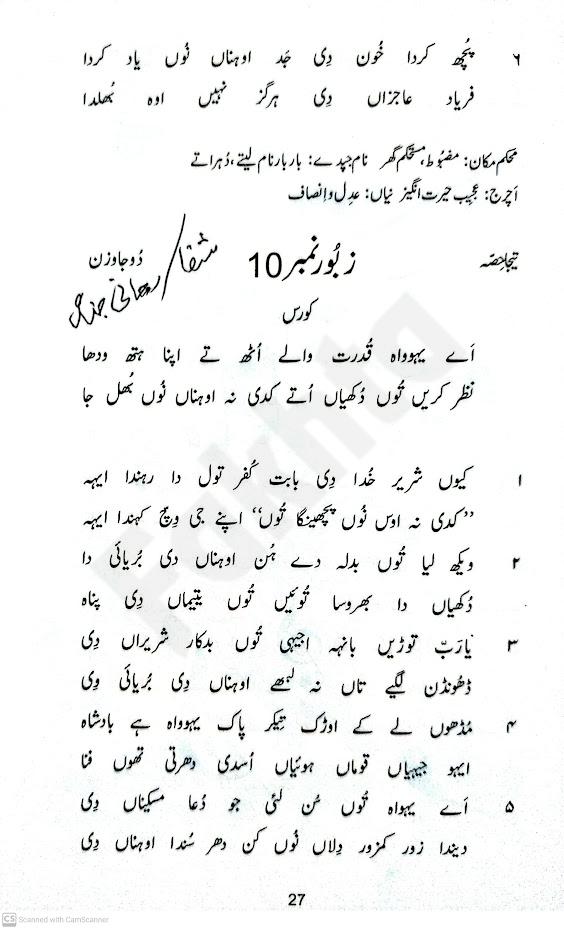 ۶ پُچھ کردا خُون دِی جَد اوہناں نُوں یاد کردا
فریاد عاجزاں دِی ہرگز نہیں اوہ بُھلدا
محکم مکان: مضبُوط، مستحکم گھر نام جپدے: بار بار نام لیتے، دُہراتے
اَچرج: عجیب حیرت انگیز نیاں: عدِل و اِنصاف
تیجا حِصّہ زبُور نمبر 10 دُوجا وزن
کورس
اَے یہوواہ قُدرت والے اُٹھ تے اپنا ہتھ ودھا
نظر کریں تُوں دُکھیاں اُتے کدی نہ اوہناں نُوں بُھل جا
۱ کیوں شریر خُدا دِی بابت کُفر تول دا رہندا ایہہ
”کدی نہ اوس نُوں پچھینگا تُوں“ اپنے جی وِچ کہندا ایہہ
۲ ویکھ لیا تُوں بدلہ دے ہُن اوہناں دی بُریائی دا
دُکھیاں دا بھروسا تُوئیں تُوں یتیماں دِی پناہ
۳ یارَبّ توڑیں بانہہ اجیہی تُوں بدکار شریراں دِی
ڈھُونڈن لگیے تاں نہ لبھے اوہناں دِی بُریائی وِی
۴ مُڈھوں لے کے اوڑک تِیکر پاک یہوواہ ہے بادشاہ
ایہو جیہیاں قوماں ہوئیاں اُسدی دھرتی تھوں فنا
۵ اَے یہواہ تُوں سُن لئی جو دُعا مسکیناں دِی
دیندا زور کمزور دِلاں نُوں کن دھر سُندا اوہناں دِی
27
CS Scanned with CamScanner
Fakhta